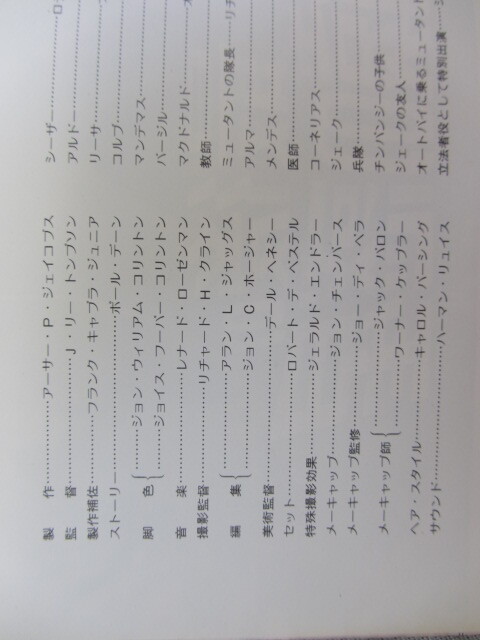 製作……………アーサー・P・ジェイコブス
監督……………J・リー・トンプソン
製作補佐……フランク・キャプラ・ジュニア
ストーリー……………ポール・デーン
脚色{……ジョン・ウィリアム・コリントン
……ジョイス・フーバー・コリントン
音楽……………レナード・ローゼンマン
撮影監督……………リチャード・H・クライン
編集{……………アラン・L・ジャッグス
……………ジョン・C・ホージャー
美術監督……………デール・ヘネシー
セット……………ロバート・デ・ベステル
特殊撮影効果……………ジェラルド・エンドラー
メーキャップ……………ジョン・チェンバース
メーキャップ監修……………ジョー・ディ・ベラ
メーキャップ師{……………ジャック・バロン
……………ワーナー・ケップラー
ヘア・スタイル……………キャロル・パーシング
サウンド……………ハーマン・リュイス
シーザー……………ロ
アルドー……………
リーサ……………
コルプ……………
マンデマス……………
バージル……………
マクドナルド……………
教師……………
ミュータントの隊長……リチ
アルマ……………
メンデス……………
医師……………
コーネリアス……………
ジェーク……………
兵隊……………
チンパンジーの子供……
ジェークの友人……………
オートバイに乗るミュータント
立法者役として特別出演……